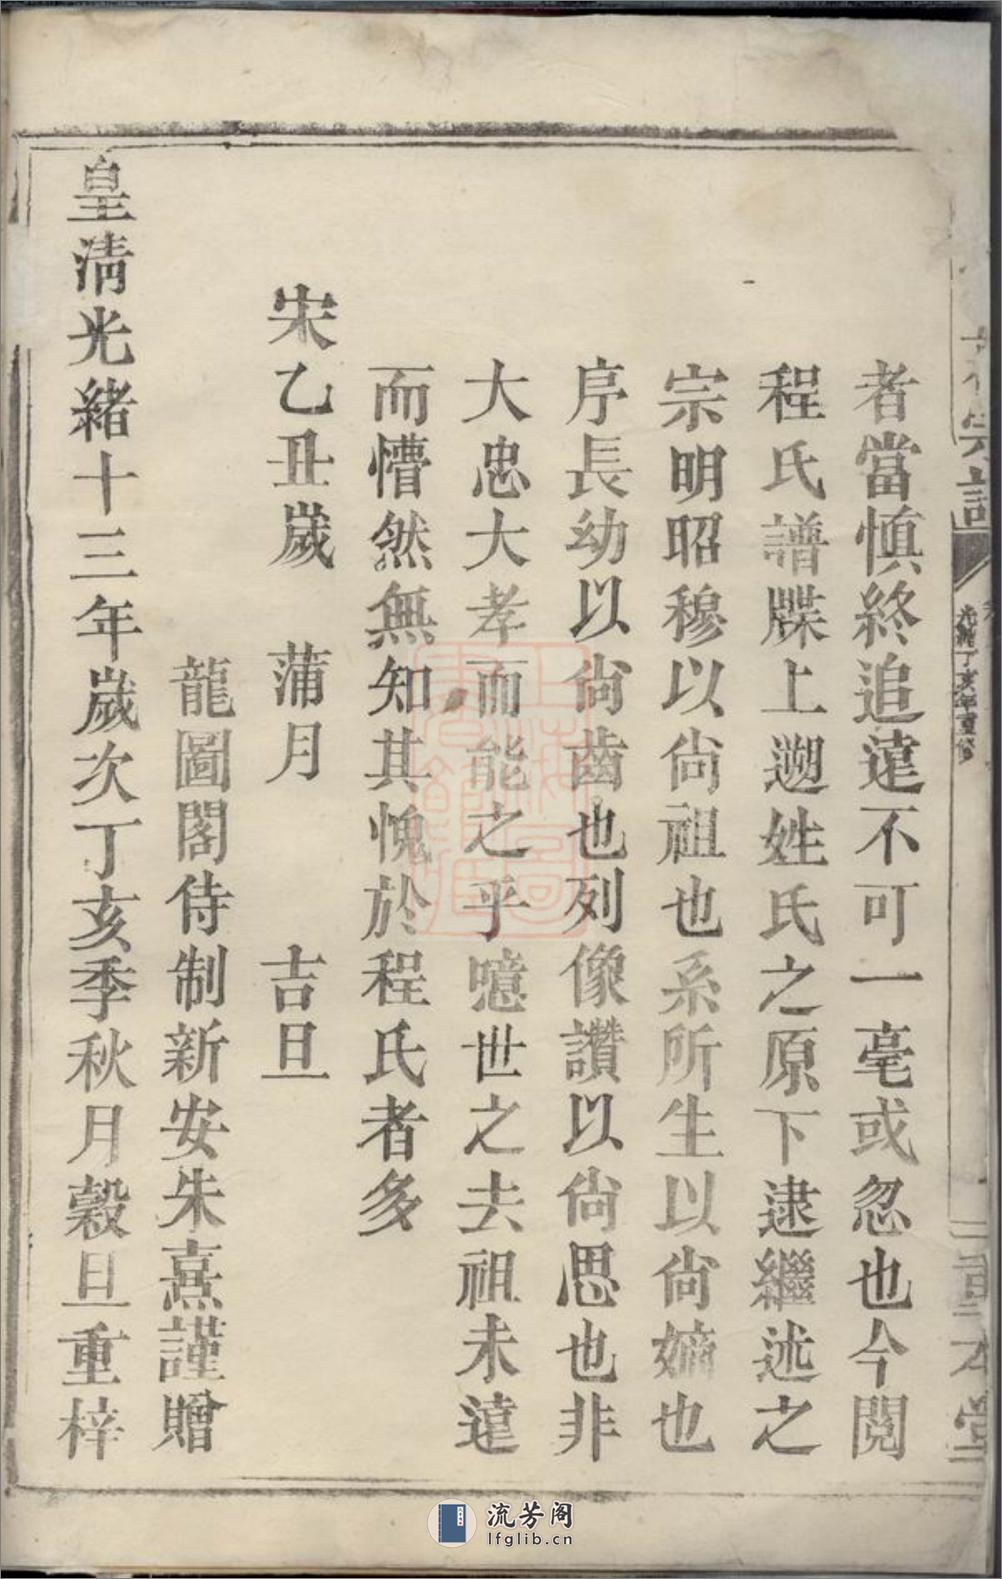 宗譜
光緒丁亥年重修
本堂
者當慎終追遠不可一毫或忽也今閱
程氏譜牒上遡姓氏之原下逮繼述之
宗明昭穆以尙祖也系所生以尙嫡也
序長幼以尙齒也列像讚以尙思也非
大忠大孝而能之乎噫世之去祖未遠
而懵然無知其愧於程氏者多
宋乙丑歲 蒲月 吉旦
龍圖閣侍制新安朱熹謹贈
皇淸光緒十三年歲次丁亥季秋月穀旦重梓
流芳阁
lfglib.cn